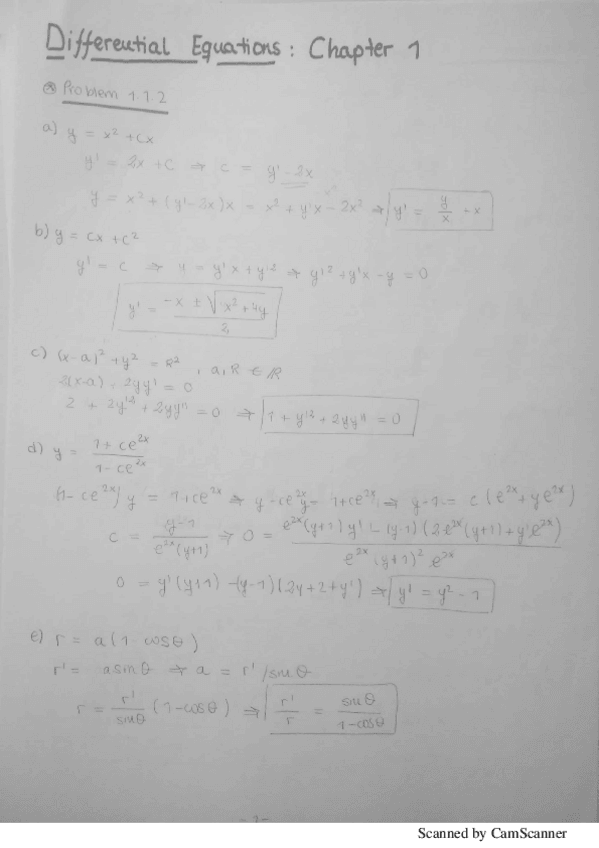 Differential Equations: Chapter 1
⊛ Problem 1.1.2
a) y = x² + cx
y' = 2x + C ⇒ c = y' - 2x
y = x² + (y' - 2x)x = x² + y'x - 2x² ⇒ y' = y/x + x
b) y = cx + c²
y' = c ⇒ y = y'x + y'² ⇒ y'² + y'x - y = 0
y' = (-x ± √(x² + 4y))/2
c) (x-a)² + y² = R² , a, R ∈ ℝ
2(x-a) + 2yy' = 0
2 + 2y'² + 2yy'' = 0 ⇒ 1 + y'² + 2yy'' = 0
d) y = (1 + ce²ˣ)/(1 - ce²ˣ)
(1 - ce²ˣ) y = 1 + ce²ˣ ⇒ y - ce²ˣy = 1 + ce²ˣ ⇒ y - 1 = c (e²ˣ + ye²ˣ)
c = (y-1)/(e²ˣ(y+1)) ⇒ 0 = (e²ˣ(y+1) y' - (y-1)(2e²ˣ(y+1) + y'e²ˣ))/(e²ˣ(y+1)² e²ˣ)
0 = y'(y+1) - (y-1)(2y + 2 + y') ⇒ y' = y² - 1
e) r = a(1 - cosθ)
r' = a sinθ ⇒ a = r'/sinθ
r = r'/sinθ (1 - cosθ) ⇒ r'/r = sinθ/(1 - cosθ)
-1-
Scanned by CamScanner